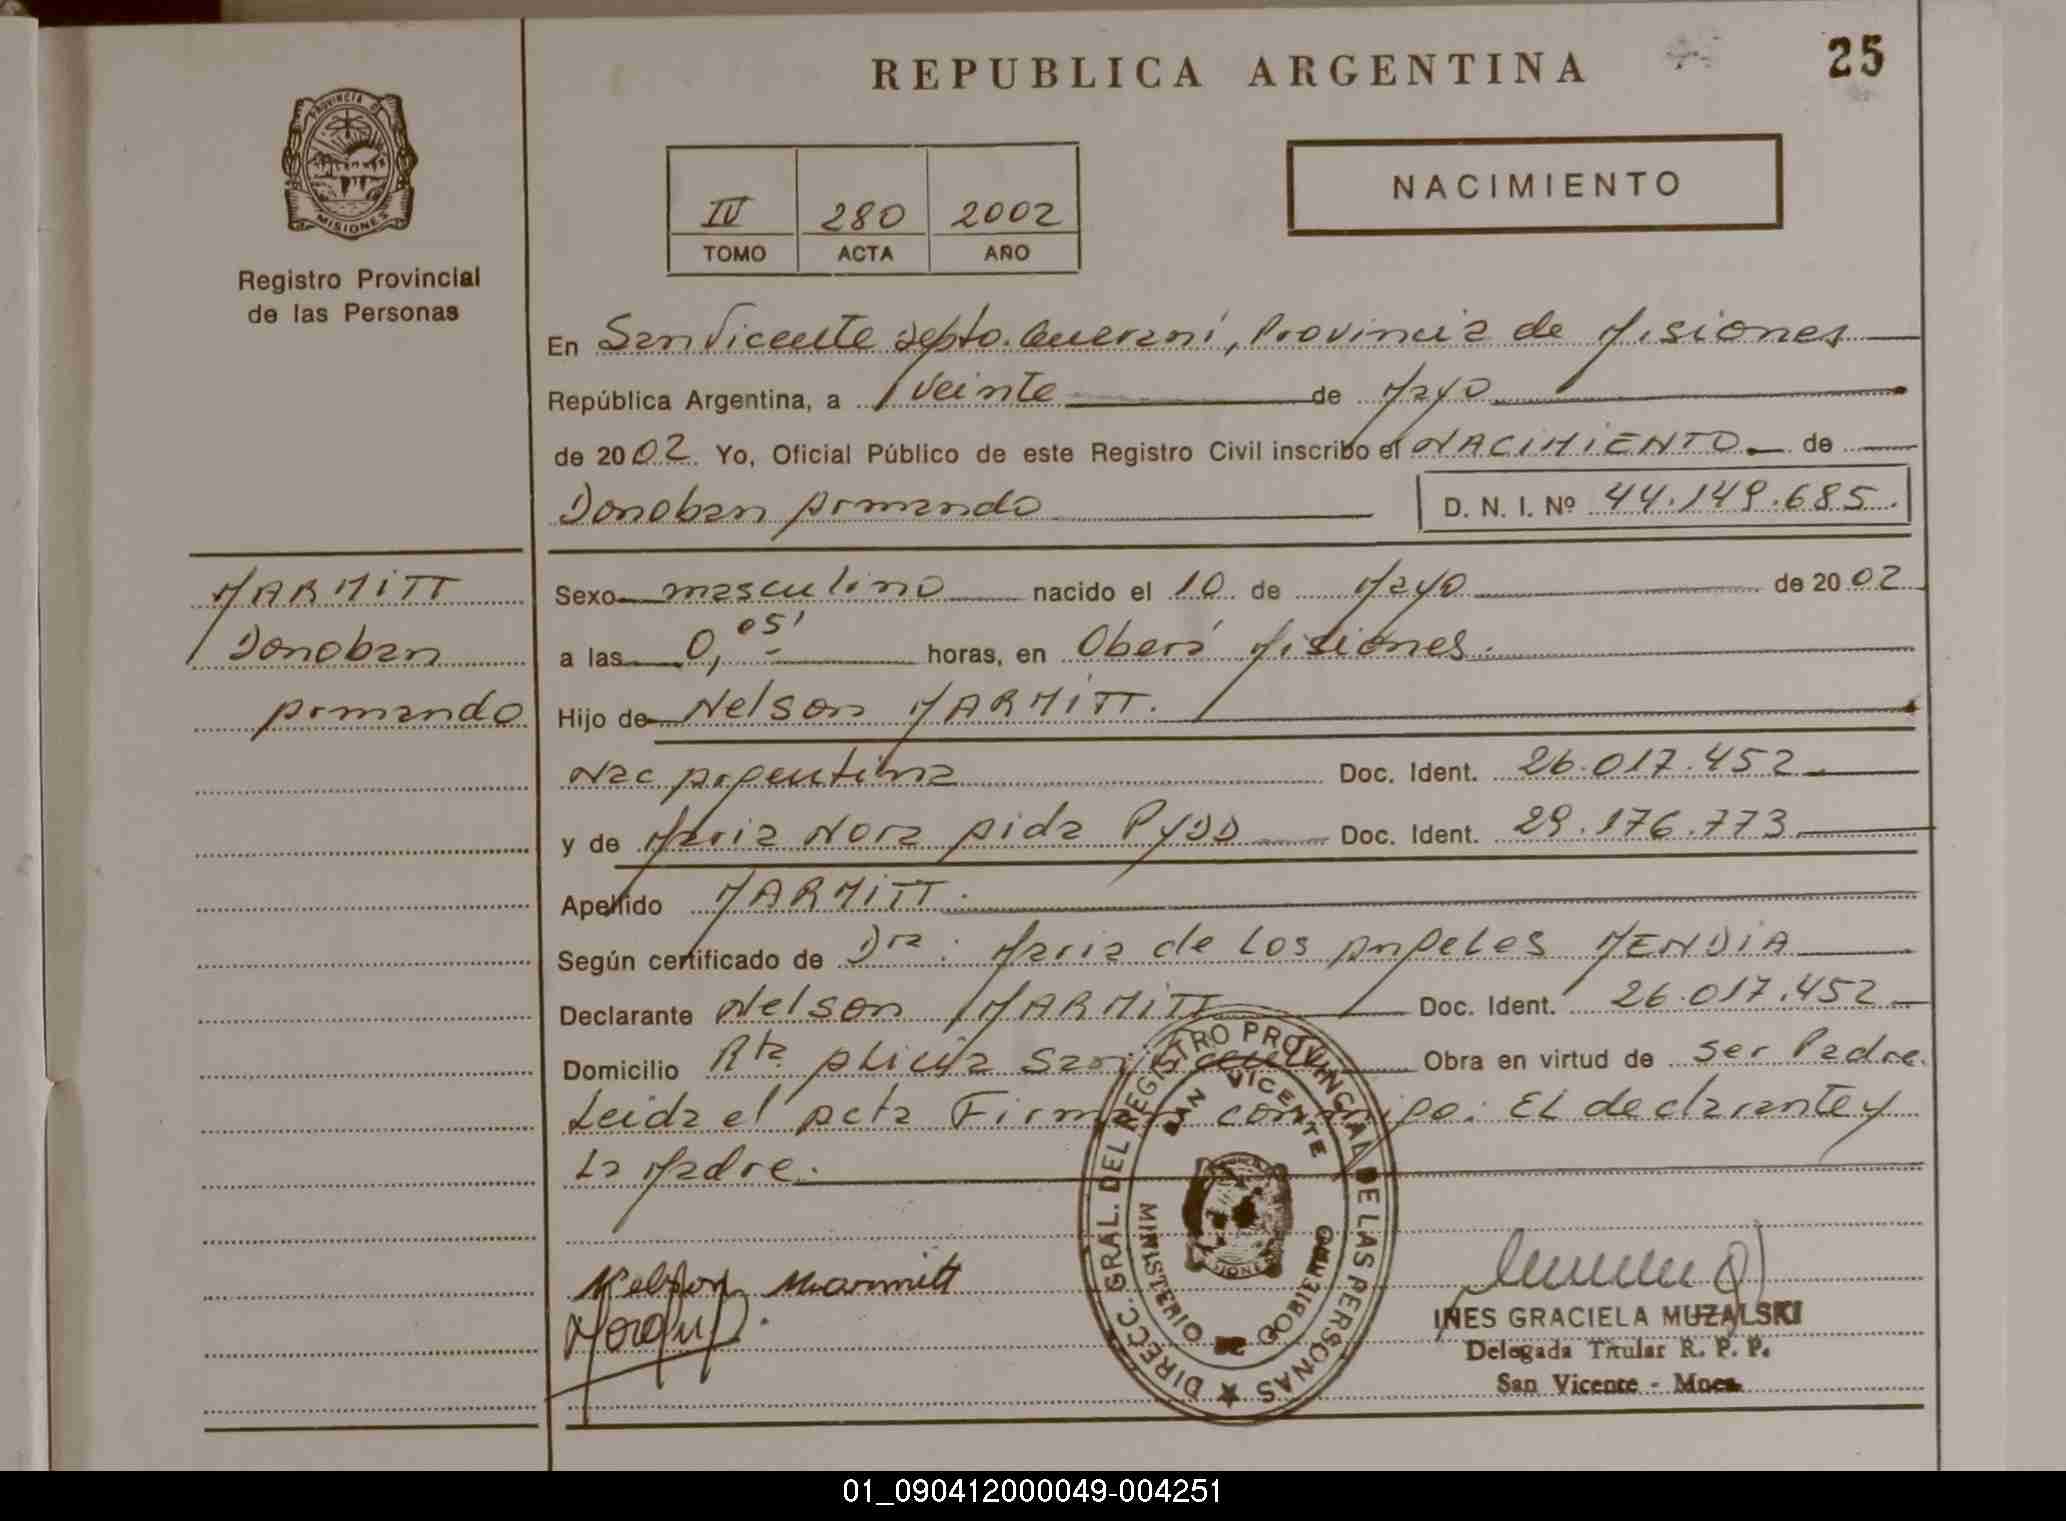 REPUBLICA ARGENTINA
25
PROVINCIA DE
MISIONES
Registro Provincial
de las Personas
IV 280 2002
TOMO ACTA AÑO
NACIMIENTO
En San Vicente Depto. Guaraní, Provincia de Misiones
República Argentina, a veinte de Mayo
de 2002. Yo, Oficial Público de este Registro Civil inscribo el NACIMIENTO de
Donoban Armando D. N. I. Nº 44.149.685.
MARMITT
Donoban
Armando
Sexo masculino nacido el 10 de Mayo de 2002
a las 0,05' horas, en Oberá Misiones.
Hijo de Nelson MARMITT.
Nac Argentina Doc. Ident. 26.017.452
y de Maria Nora Aida PYDD Doc. Ident. 29.176.773
Apellido MARMITT.
Según certificado de Dra. Maria de Los Angeles MENDIA
Declarante Nelson MARMITT Doc. Ident. 26.017.452
Domicilio Rta Alicia San Vicente Obra en virtud de ser Padre.
Leida el Acta Firman conmigo: El declarante y
La Madre.
DIRECC. GRAL. DEL REGISTRO PROVINCIAL DE LAS PERSONAS
SAN VICENTE
MINISTERIO DE GOBIERNO
Nelson Marmitt
INES GRACIELA MUZALSKI
Delegada Titular R. P. P.
San Vicente - Mnes.
01_090412000049-004251